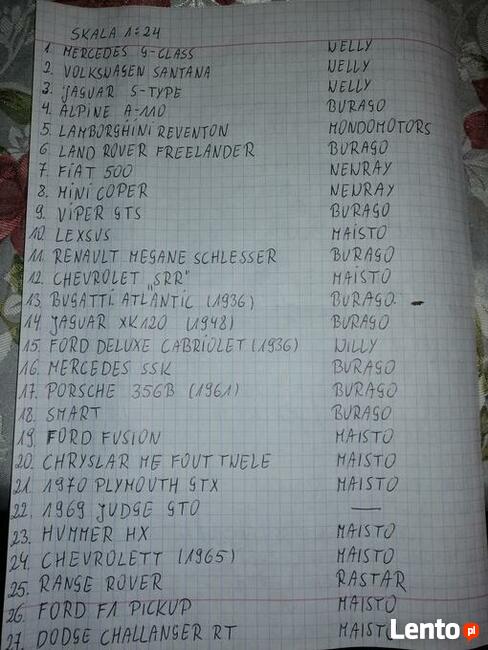 SKALA 1:24
1. MERCEDES G-CLASS WELLY
2. VOLKSWAGEN SANTANA WELLY
3. JAGUAR S-TYPE WELLY
4. ALPINE A-110 BURAGO
5. LAMBORGHINI REVENTON MONDOMOTORS
6. LAND ROVER FREELANDER BURAGO
7. FIAT 500 NEWRAY
8. MINI COPER NEWRAY
9. VIPER GTS BURAGO
10. LEXSUS MAISTO
11. RENAULT MEGANE SCHLESSER BURAGO
12. CHEVROLET "SRR" MAISTO
13. BUGATTI ATLANTIC (1936) BURAGO -
14. JAGUAR XK120 (1948) BURAGO
15. FORD DELUXE CABRIOLET (1936) WILLY
16. MERCEDES SSK BURAGO
17. PORSCHE 356B (1961) BURAGO
18. SMART BURAGO
19. FORD FUSION MAISTO
20. CHRYSLAR ME FOUT TWELE MAISTO
21. 1970 PLYMOUTH GTX MAISTO
22. 1969 JUDGE GTO —
23. HUMMER HX MAISTO
24. CHEVROLETT (1965) MAISTO
25. RANGE ROVER RASTAR
26. FORD F1 PICKUP MAISTO
27. DODGE CHALLANGER RT MAISTO
Lento.pl